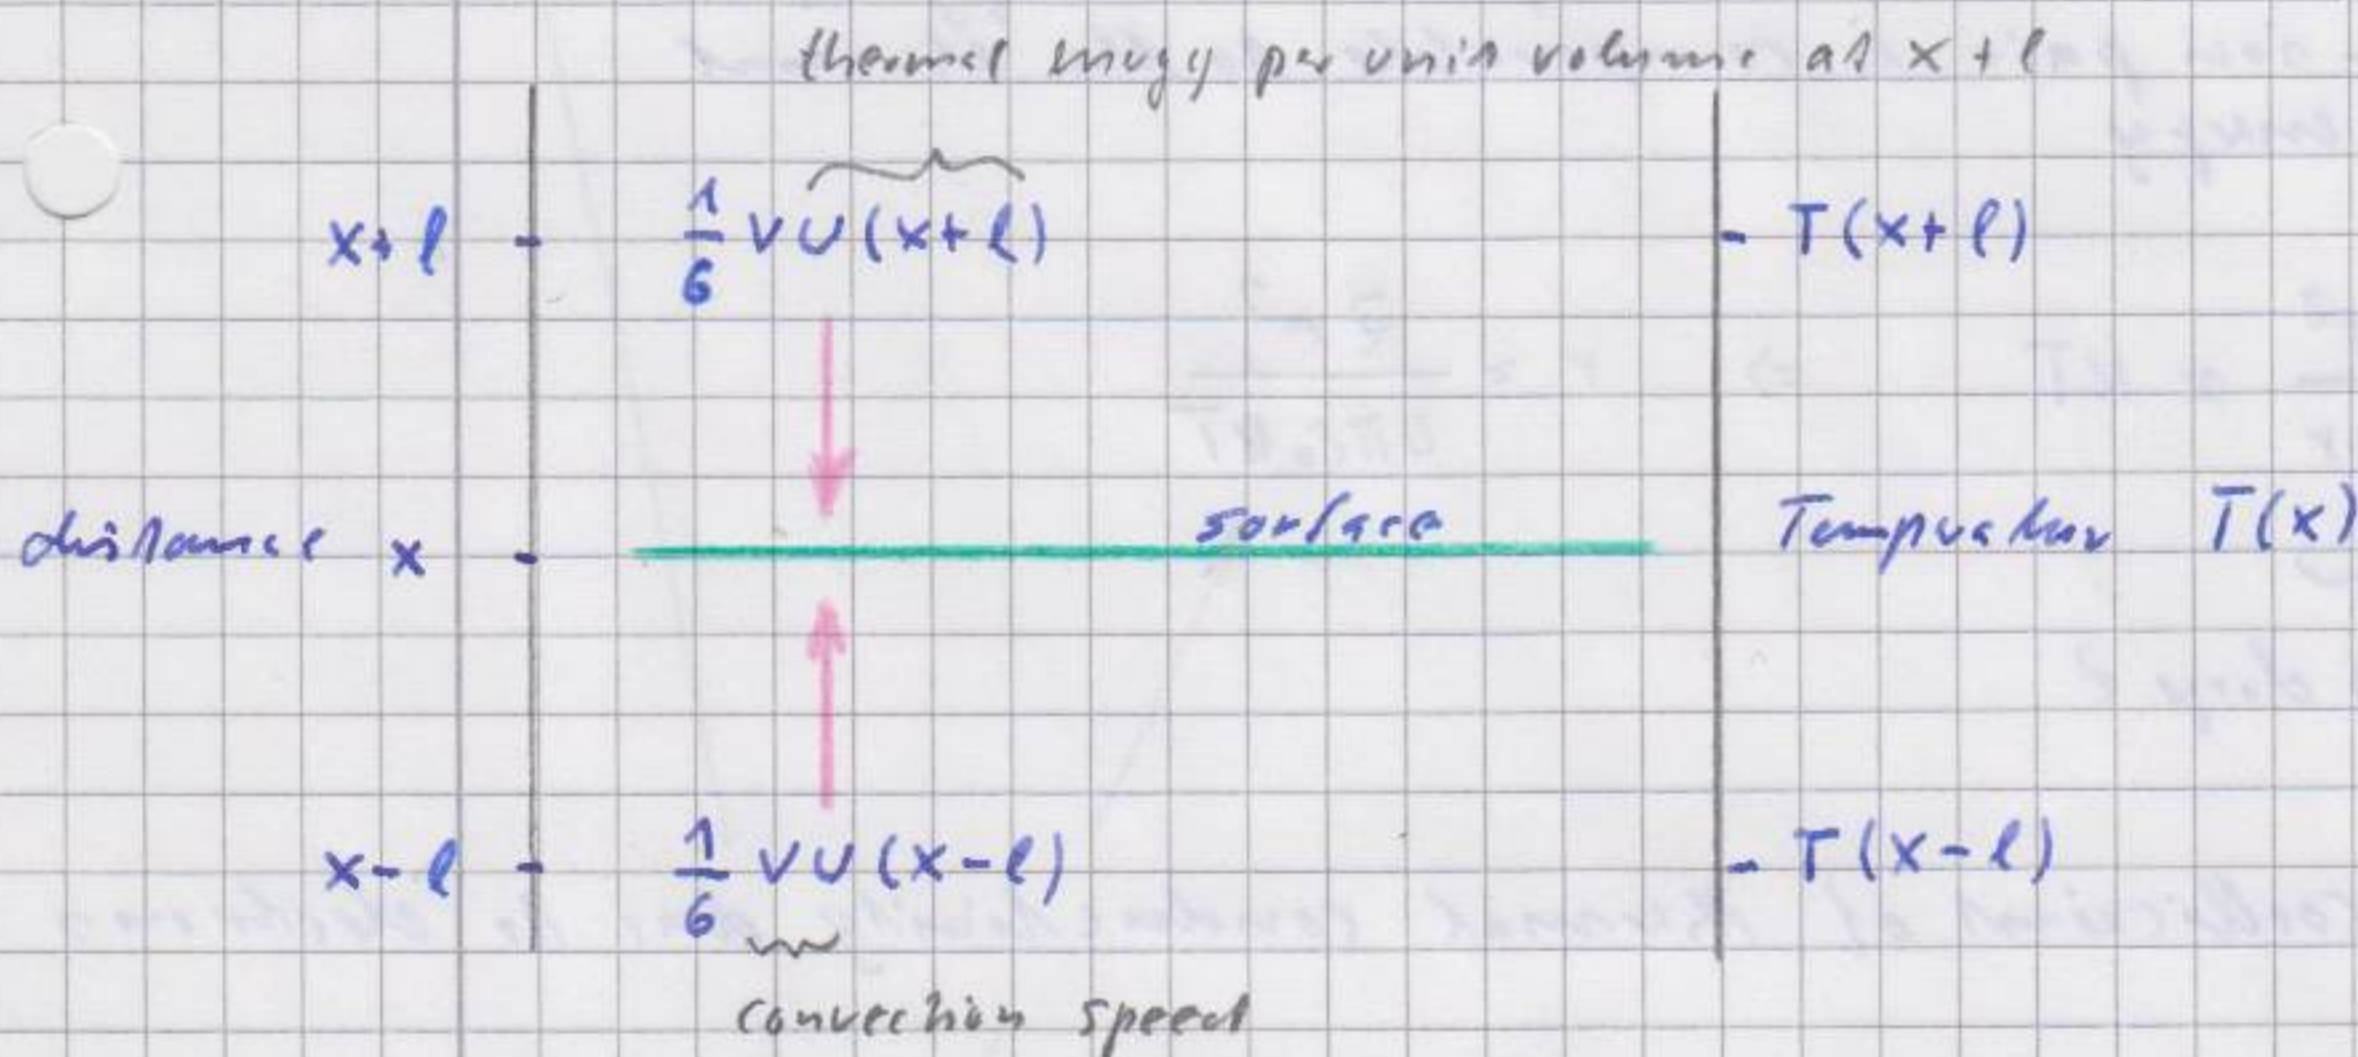 thermal energy per unit volume at x + l
x+l - 1/6 v U(x+l) - T(x+l)
distance x - surface Temperatur T(x)
x-l - 1/6 v U(x-l) - T(x-l)
convection speed